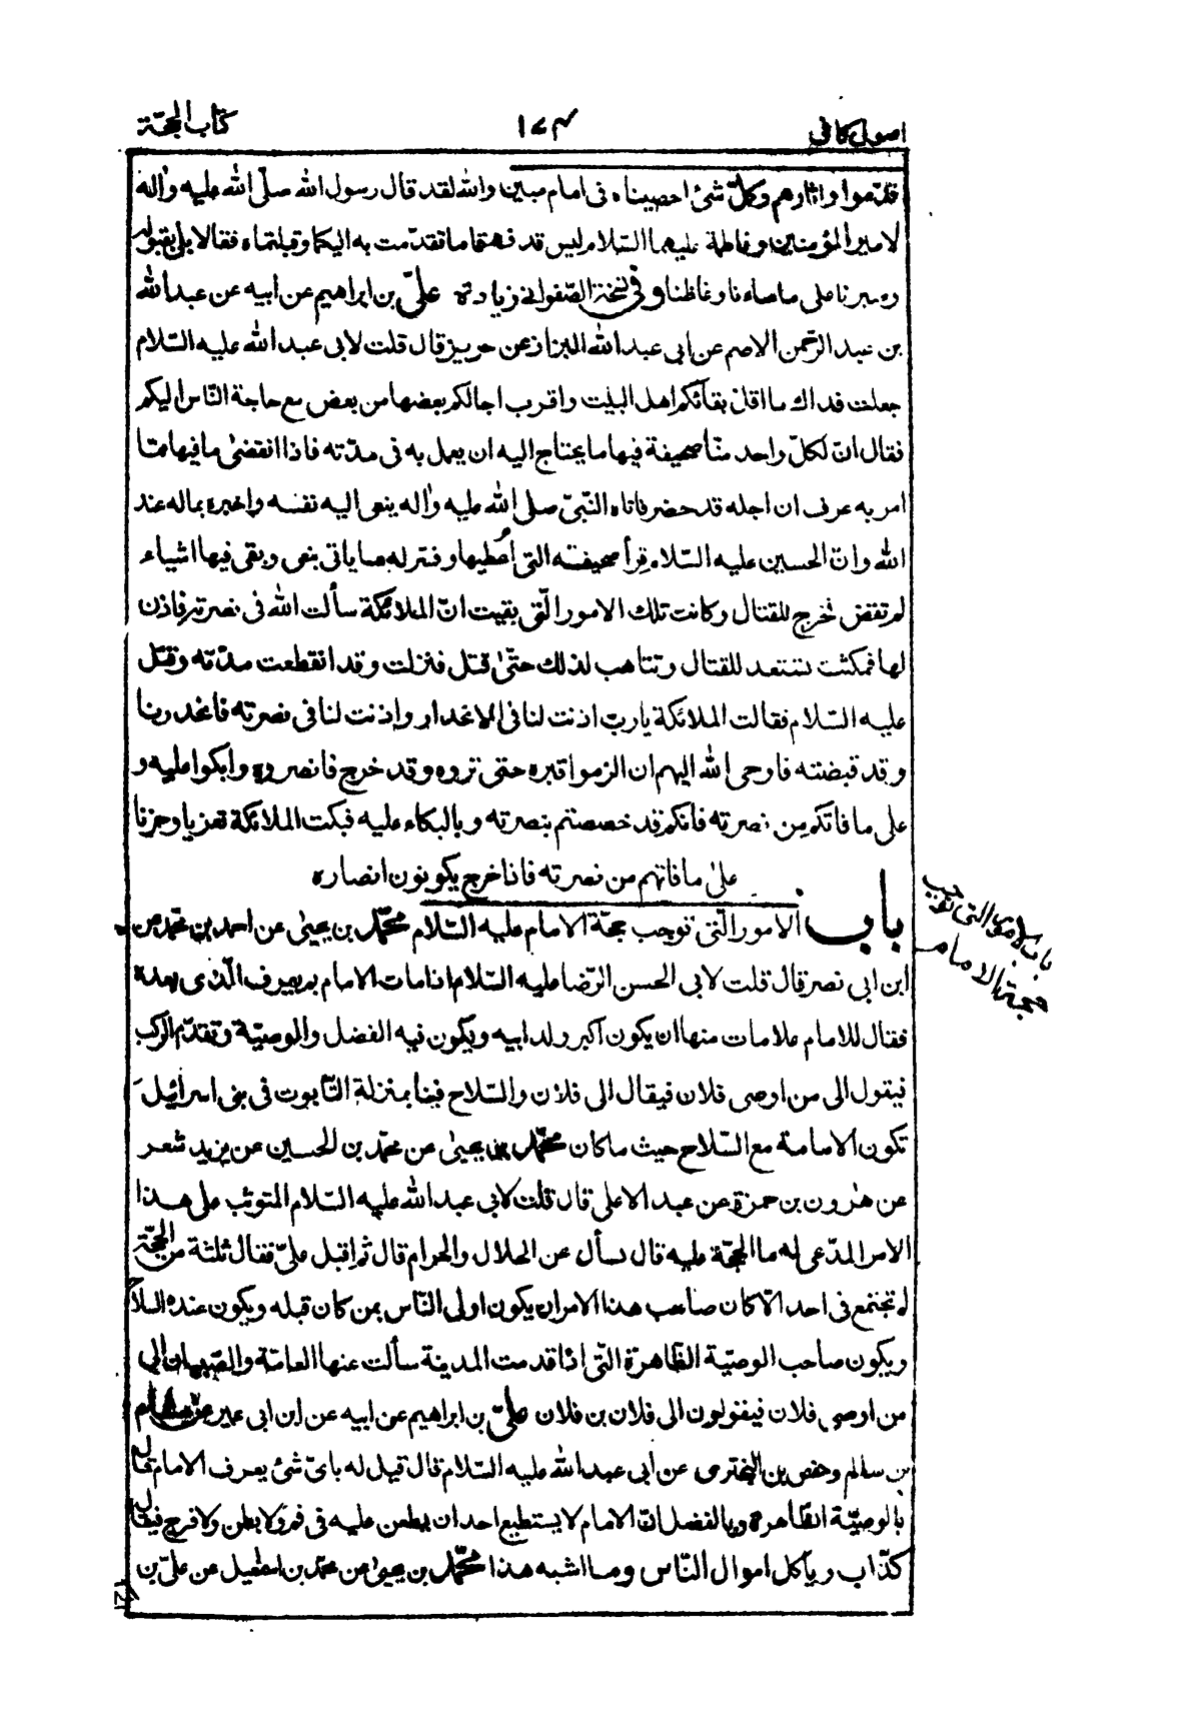 اصول كافى
١٧٣
كتاب الحجّة
قدّموا واثارهم وكلّ شئ احصيناه فى امام مبين والله لقد قال رسول الله صلّى الله عليه واٰله
لامير المؤمنين وفاطمة عليهما السّلام ليس قد فهمتما ما تقدّمت به اليكما وقبلتماه فقالا بلى بقبوله
وصبرنا على ما ساءنا وغاظنا وفى نسخة الصّفوانى زيادة علىّ بن ابراهيم عن ابيه عن عبد الله
بن عبد الرّحمن الاصم عن ابى عبد الله البزاز عن حريز قال قلت لابى عبد الله عليه السّلام
جعلت فداك ما اقلّ بقاءكم اهل البيت واقرب اجالكم بعضها من بعض مع حاجة النّاس اليكم
فقال انّ لكلّ واحد منّا صحيفة فيها ما يحتاج اليه ان يعمل به فى مدّته فاذا انقضىٰ ما فيها ممّا
امر به عرف ان اجله قد حضر فاتاه النّبىّ صلى الله عليه واٰله ينعى اليه نفسه واخبره بماله عند
الله وانّ الحسين عليه السّلام قرأ صحيفته التى اُعطيها وفسّر له ما ياتى بنعى وبقى فيها اشياء
لم تقض فخرج للقتال وكانت تلك الامور الّتى بقيت انّ الملائكة سألت الله فى نصرته فاذن
لها فمكثت تستعد للقتال وتتاهب لذلك حتّىٰ قتل فنزلت وقد انقطعت مدّته وقتل
عليه السّلام فقالت الملائكة يا ربّ اذنت لنا فى الانحدار واذنت لنا فى نصرته فانحدرنا
وقد قبضته فاوحى الله اليهم ان الزموا قبره حتى تروه وقد خرج فانصروه وابكوا عليه و
على ما فاتكم من نصرته فانكم قد خصصتم بنصرته وبالبكاء عليه فبكت الملائكة تعزيا وحزنا
علىٰ ما فاتهم من نصرته فاذا خرج يكونون انصاره
باب الامور الّتى توجب حجّة الامام عليه السّلام محمّد بن يحيىٰ عن احمد بن محمّد عن
ابن ابى نصر قال قلت لابى الحسن الرّضا عليه السّلام اذا مات الامام بم يعرف الّذى بعده
فقال للامام علامات منها ان يكون اكبر ولد ابيه ويكون فيه الفضل والوصيّة وتقدم الركب
فيقول الى من اوصى فلان فيقال الى فلان والسّلاح فينا بمنزلة التّابوت فى بنى اسرائيل
تكون الامامة مع السّلاح حيث ما كان محمّد بن يحيىٰ عن محمّد بن الحسين عن يزيد شعر
عن هٰرون بن حمزة عن عبد الاعلى قال قلت لابى عبد الله عليه السّلام المتوثّب على هذا
الامر المدّعى له ما الحجّة عليه قال يسأل عن الحلال والحرام قال ثمّ اقبل علىّ فقال ثلثة من الحجّة
لم تجتمع فى احد الّا كان صاحب هذا الامر ان يكون اولى النّاس بمن كان قبله ويكون عنده السلاح
ويكون صاحب الوصيّة الظّاهرة الّتى اذا قدمت المدينة سألت عنها العامّة والصّبيان الى
من اوصى فلان فيقولون الى فلان بن فلان علىّ بن ابراهيم عن ابيه عن ابن ابى عمير عن هشام
بن سالم وحفص بن البخترى عن ابى عبد الله عليه السّلام قال قيل له باىّ شئ يعرف الامام قال
بالوصيّة الظّاهرة وبالفضل انّ الامام لا يستطيع احد ان يطعن عليه فى فم ولا بطن ولا فرج فيقال
كذّاب ويأكل اموال النّاس وما اشبه هذا محمّد بن يحيىٰ عن محمّد بن اسمٰعيل عن علىّ بن
باب الامور التى توجب
حجة الامام